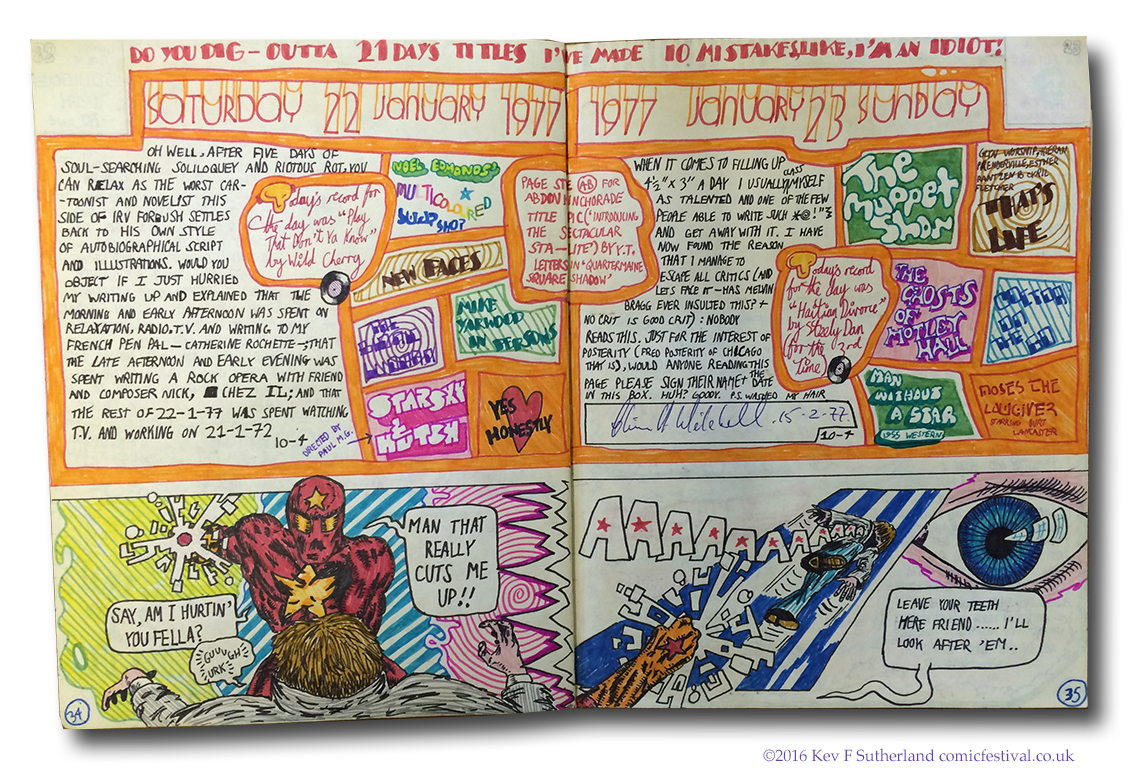 DO YOU DIG - OUTTA 21 DAYS TITLES I'VE MADE 10 MISTAKES LIKE, I'M AN IDIOT!
SATURDAY 22 JANUARY 1977
OH WELL, AFTER FIVE DAYS OF
SOUL-SEARCHING SOLILOQUEY AND RIOTOUS ROT, YOU
CAN RELAX AS THE WORST CAR-
-TOONIST AND NOVELIST THIS
SIDE OF IRV FORBUSH SETTLES
BACK TO HIS OWN STYLE
OF AUTOBIOGRAPHICAL SCRIPT
AND ILLUSTRATIONS. WOULD YOU
OBJECT IF I JUST HURRIED
MY WRITING UP AND EXPLAINED THAT THE
MORNING AND EARLY AFTERNOON WAS SPENT ON
RELAXATION, RADIO, T.V. AND WRITING TO MY
FRENCH PEN PAL - CATHERINE ROCHETTE -; THAT
THE LATE AFTERNOON AND EARLY EVENING WAS
SPENT WRITING A ROCK OPERA WITH FRIEND
AND COMPOSER NICK, CHEZ IL; AND THAT
THE REST OF 22-1-77 WAS SPENT WATCHING
T.V. AND WORKING ON 21-1-72
10-4
Today's record for
the day was "Play
That Don't Ya Know"
by Wild Cherry
NOEL EDMONDS'S
MULTICOLOURED
SWAP SHOP
NEW FACES
MIKE
YARWOOD
IN PERSONS
STARSKY
&
HUTCH
DIRECTED BY
PAUL M.G.
YES
HONESTLY
PAGE STE (A-B) FOR
ABDON ANCHORADE
TITLE PIC ("INTRODUCING
THE SECTACULAR
STA-LUTE") BY Y.T.
LETTERS IN "QUARTERMAINE
SQUARE SHADOW"
1977 JANUARY 23 SUNDAY
WHEN IT COMES TO FILLING UP
4½" x 3" A DAY I USUALLY CLASS MYSELF
AS TALENTED AND ONE OF THE FEW
PEOPLE ABLE TO WRITE SUCH *@!"½
AND GET AWAY WITH IT. I HAVE
NOW FOUND THE REASON
THAT I MANAGE TO
ESCAPE ALL CRITICS (AND
LETS FACE IT - HAS MELVIN
BRAGG EVER INSULTED THIS? +
NO CRIT IS GOOD CRIT) : NOBODY
READS THIS. JUST FOR THE INTEREST OF
POSTERITY (FRED POSTERITY OF CHICAGO
THAT IS), WOULD ANYONE READING THIS
PAGE PLEASE SIGN THEIR NAME + THE DATE
IN THIS BOX. HUH? GOODY. P.S. WASHED MY HAIR
15-2-77
10-4
Today's record
for the day was
"Haitian Divorce"
by Steely Dan
for the 3rd
Time
The
Muppet
Show
ESTHER
RANTZEN & CYRIL
FLETCHER
THAT'S
LIFE
THE
GHOSTS
OF
MOTLEY
HALL
MAN
WITHOUT
A STAR
1955 WESTERN
MOSES THE
LAWGIVER
STARRING BURT
LANCASTER
SAY, AM I HURTIN'
YOU FELLA?
GUUUGH
URK
MAN THAT
REALLY
CUTS ME
UP!!
AAAAAAAAAAA
LEAVE YOUR TEETH
HERE FRIEND...... I'LL
LOOK AFTER 'EM..
34
35
©2016 Kev F Sutherland comicfestival.co.uk